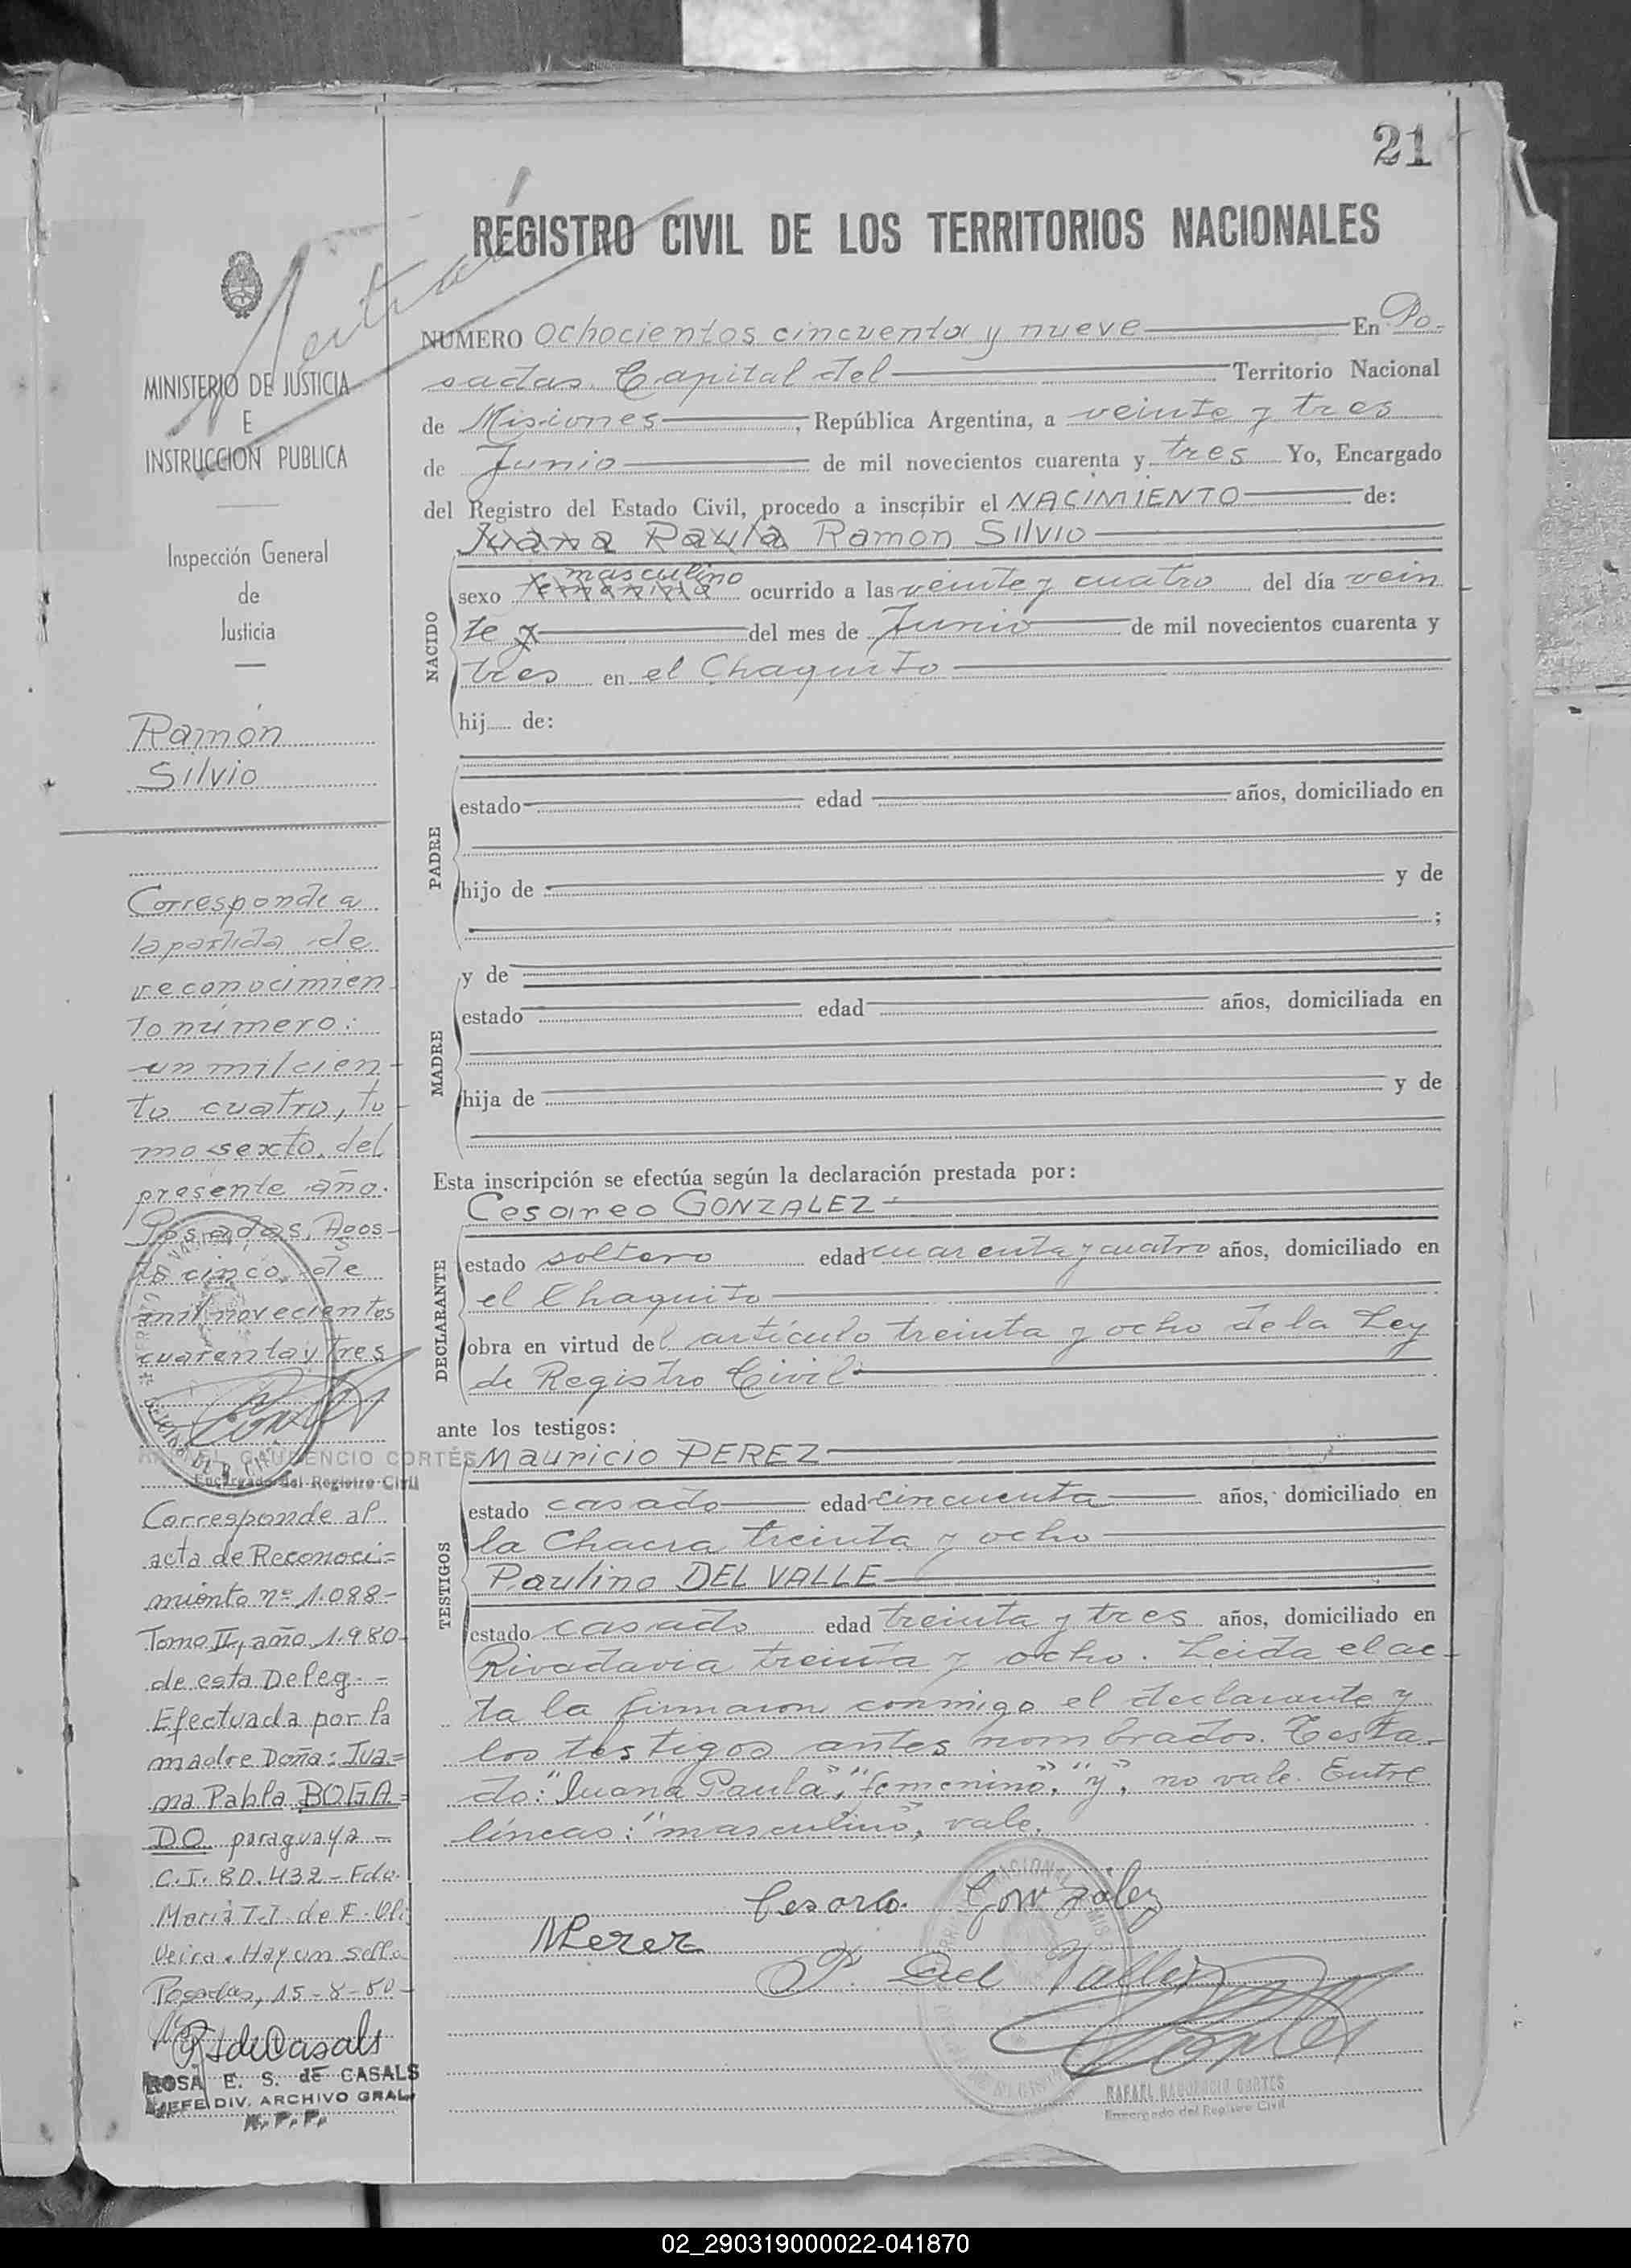 21
REGISTRO CIVIL DE LOS TERRITORIOS NACIONALES
MINISTERIO DE JUSTICIA
E
INSTRUCCION PUBLICA
Inspección General
de
Justicia
Ramón
Silvio
Corresponde a
la partida de
reconocimien
to número:
un mil cien-
to cuatro, to-
mo sexto, del
presente año.
Posadas, Agos-
to cinco, de
mil novecientos
cuarenta y tres
GAUDENCIO CORTÉS
Encargado del Registro Civil
Corresponde al
acta de Reconoci=
miento nº 1.088-
Tomo II, año 1.980-
de esta Deleg.=
Efectuada por la
madre Doña: Jua=
na Pabla BOGA=
DO paraguaya-
C.I. 80.432-Fdo.
María T.J. de F. Oli
veira. Hay un sello
Posadas, 15-8-80-
ROSA E. S. de CASALS
JEFE DIV. ARCHIVO GRAL.
R.P.P.
NUMERO ochocientos cincuenta y nueve En Po-
sadas Capital del Territorio Nacional
de Misiones, República Argentina, a veinte y tres
de Junio de mil novecientos cuarenta y tres Yo, Encargado
del Registro del Estado Civil, procedo a inscribir el NACIMIENTO de:
Juana Paula Ramon Silvio
masculino
sexo femenino ocurrido a las veinte y cuatro del día vein
te y del mes de Junio de mil novecientos cuarenta y
tres en el Chaquito
hij de:
NACIDO
estado edad años, domiciliado en
PADRE
hijo de y de
;
y de
estado edad años, domiciliada en
MADRE
hija de y de
Esta inscripción se efectúa según la declaración prestada por:
Cesareo GONZALEZ
estado soltero edad cuarenta y cuatro años, domiciliado en
el Chaquito
DECLARANTE
obra en virtud del artículo treinta y ocho de la Ley
de Registro Civil
ante los testigos:
Mauricio PEREZ
estado casado edad cincuenta años, domiciliado en
la Chacra treinta y ocho
TESTIGOS
Paulino DEL VALLE
estado casado edad treinta y tres años, domiciliado en
Rivadavia treinta y ocho. Leida el ac-
ta la firmaron conmigo el declarante y
los testigos antes nombrados. Testa-
do: "Juana Paula", "femenino", "y", no vale. Entre
líneas: "masculino", vale.
Cesareo Gonzalez
MPerez
P. Del Valle
RAFAEL GAUDENCIO CORTES
Encargado del Registro Civil
02_290319000022-041870